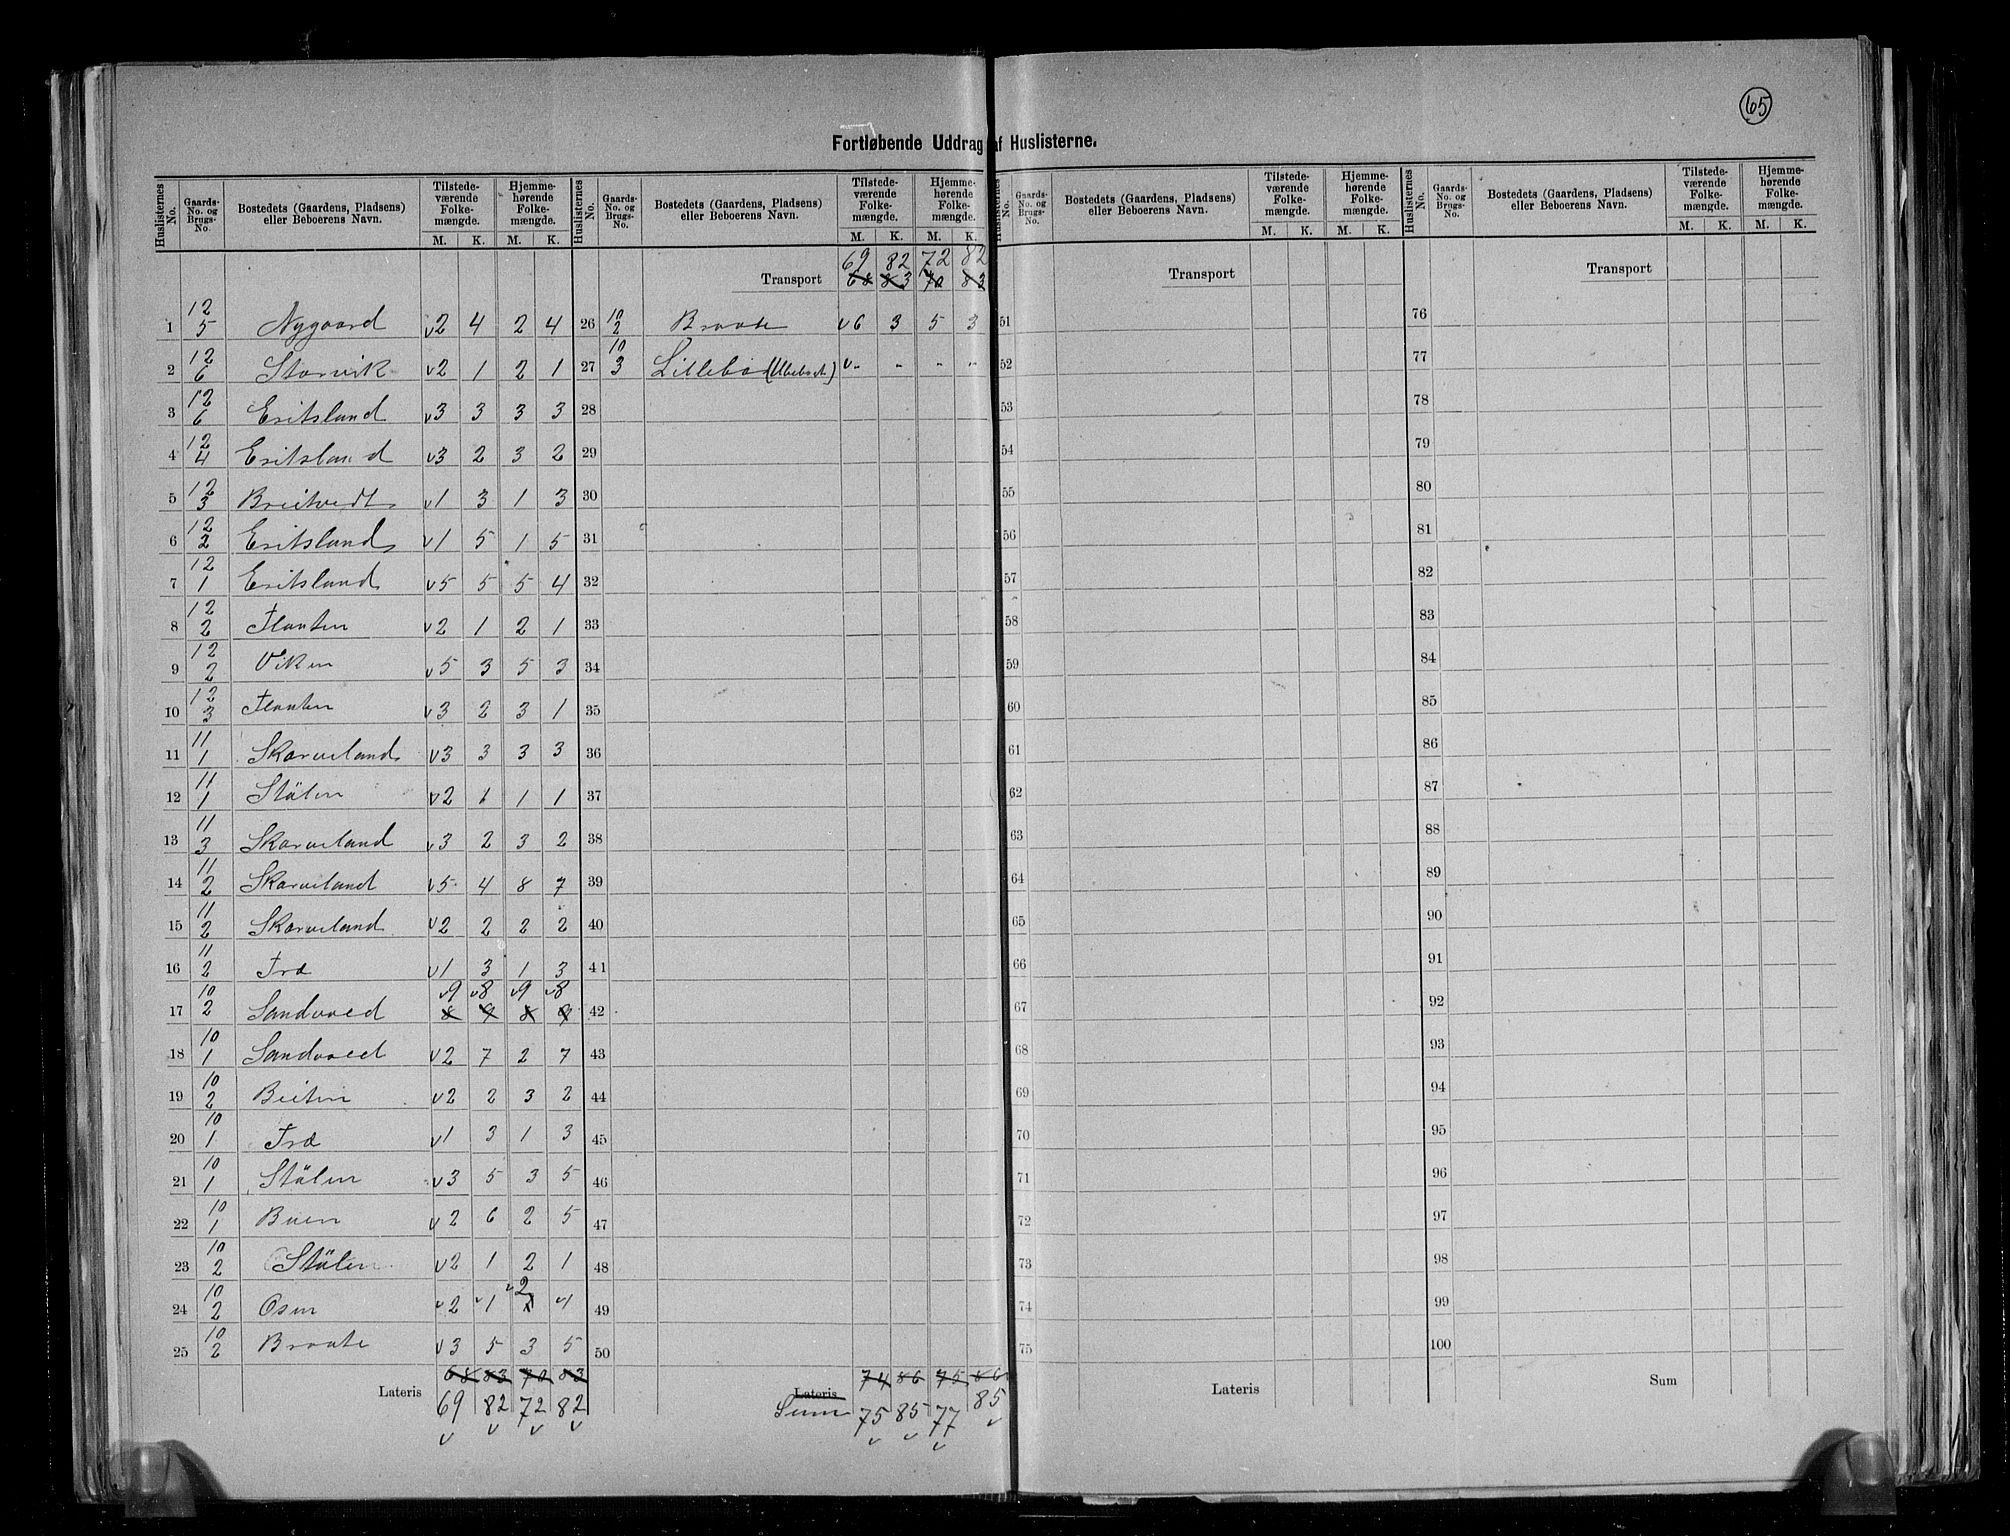 65
Fortløbende Uddrag af Huslisterne.
Huslisternes No. | Gaards-No. og Brugs-No. | Bostedets (Gaardens, Pladsens) eller Beboerens Navn. | Tilstedeværende Folkemængde. M. K. | Hjemmehørende Folkemængde. M. K.
1 | 12/5 | Nygaard | v2 | 4 | 2 | 4
2 | 12/6 | Storvik | v2 | 1 | 2 | 1
3 | 12/6 | Eritsland | v3 | 3 | 3 | 3
4 | 12/4 | Eritsland | v3 | 2 | 3 | 2
5 | 12/3 | Breitvedt | v1 | 3 | 1 | 3
6 | 12/2 | Eritsland | v1 | 5 | 1 | 5
7 | 12/1 | Eritsland | v5 | 5 | 5 | 4
8 | 12/2 | Flaaten | v2 | 1 | 2 | 1
9 | 12/2 | Viken | v5 | 3 | 5 | 3
10 | 12/3 | Flaaten | v3 | 2 | 3 | 1
11 | 11/1 | Skarveland | v3 | 3 | 3 | 3
12 | 11/1 | Stölen | v2 | 1 | 1 | 1
13 | 11/3 | Skarveland | v3 | 2 | 3 | 2
14 | 11/2 | Skarveland | v5 | 4 | 8 | 7
15 | 11/2 | Skarveland | v2 | 2 | 2 | 2
16 | 11/2 | Træ | v1 | 3 | 1 | 3
17 | 10/2 | Sandvoed | v9 | v8 | v9 | v8
8 | 9 | 8 | 9
18 | 10/1 | Sandvoed | v2 | 7 | 2 | 7
19 | 10/2 | Beiten | v2 | 2 | 3 | 2
20 | 10/1 | Træ | v1 | 3 | 1 | 3
21 | 10/1 | Stölen | v3 | 5 | 3 | 5
22 | 10/1 | Buen | v2 | 6 | 2 | 5
23 | 10/2 | Stölen | v2 | 1 | 2 | 1
24 | 10/2 | Osen | v2 | v1 | v2 | v1
25 | 10/2 | Braate | v3 | 5 | 3 | 5
68 | 83 | 70 | 83
Lateris | 69 | 82 | 72 | 82
Huslisternes No. | Gaards-No. og Brugs-No. | Bostedets (Gaardens, Pladsens) eller Beboerens Navn. | Tilstedeværende Folkemængde. M. K. | Hjemmehørende Folkemængde. M. K.
69 | 82 | 72 | 82
Transport | 68 | 83 | 70 | 83
26 | 10/2 | Braate | v6 | 3 | 5 | 3
27 | 10/3 | Lillebö (Ubeboet) | v- | - | - | -
28
29
30
31
32
33
34
35
36
37
38
39
40
41
42
43
44
45
46
47
48
49
50
74 | 86 | 75 | 86
Lateris
Sum | 75 | 85 | 77 | 85
Huslisternes No. | Gaards-No. og Brugs-No. | Bostedets (Gaardens, Pladsens) eller Beboerens Navn. | Tilstedeværende Folkemængde. M. K. | Hjemmehørende Folkemængde. M. K.
Transport
51
52
53
54
55
56
57
58
59
60
61
62
63
64
65
66
67
68
69
70
71
72
73
74
75
Lateris
Huslisternes No. | Gaards-No. og Brugs-No. | Bostedets (Gaardens, Pladsens) eller Beboerens Navn. | Tilstedeværende Folkemængde. M. K. | Hjemmehørende Folkemængde. M. K.
Transport
76
77
78
79
80
81
82
83
84
85
86
87
88
89
90
91
92
93
94
95
96
97
98
99
100
Sum